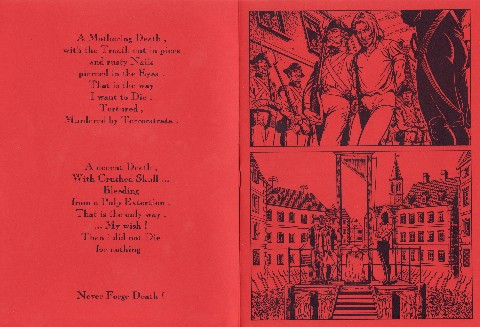 A Mothering Death ,
with the Trouth cut in pices
and rusty Nails
pierced in the Eyes .
That is the way
I want to Die .
Tortured ,
Murdered by Terrorists .
A nocent Death ,
With Crushed Skull ...
Bleeding
from a Poly Extortion .
That is the only way .
... My wish !
Then i did not Die
for nothing
Never Forge Death !